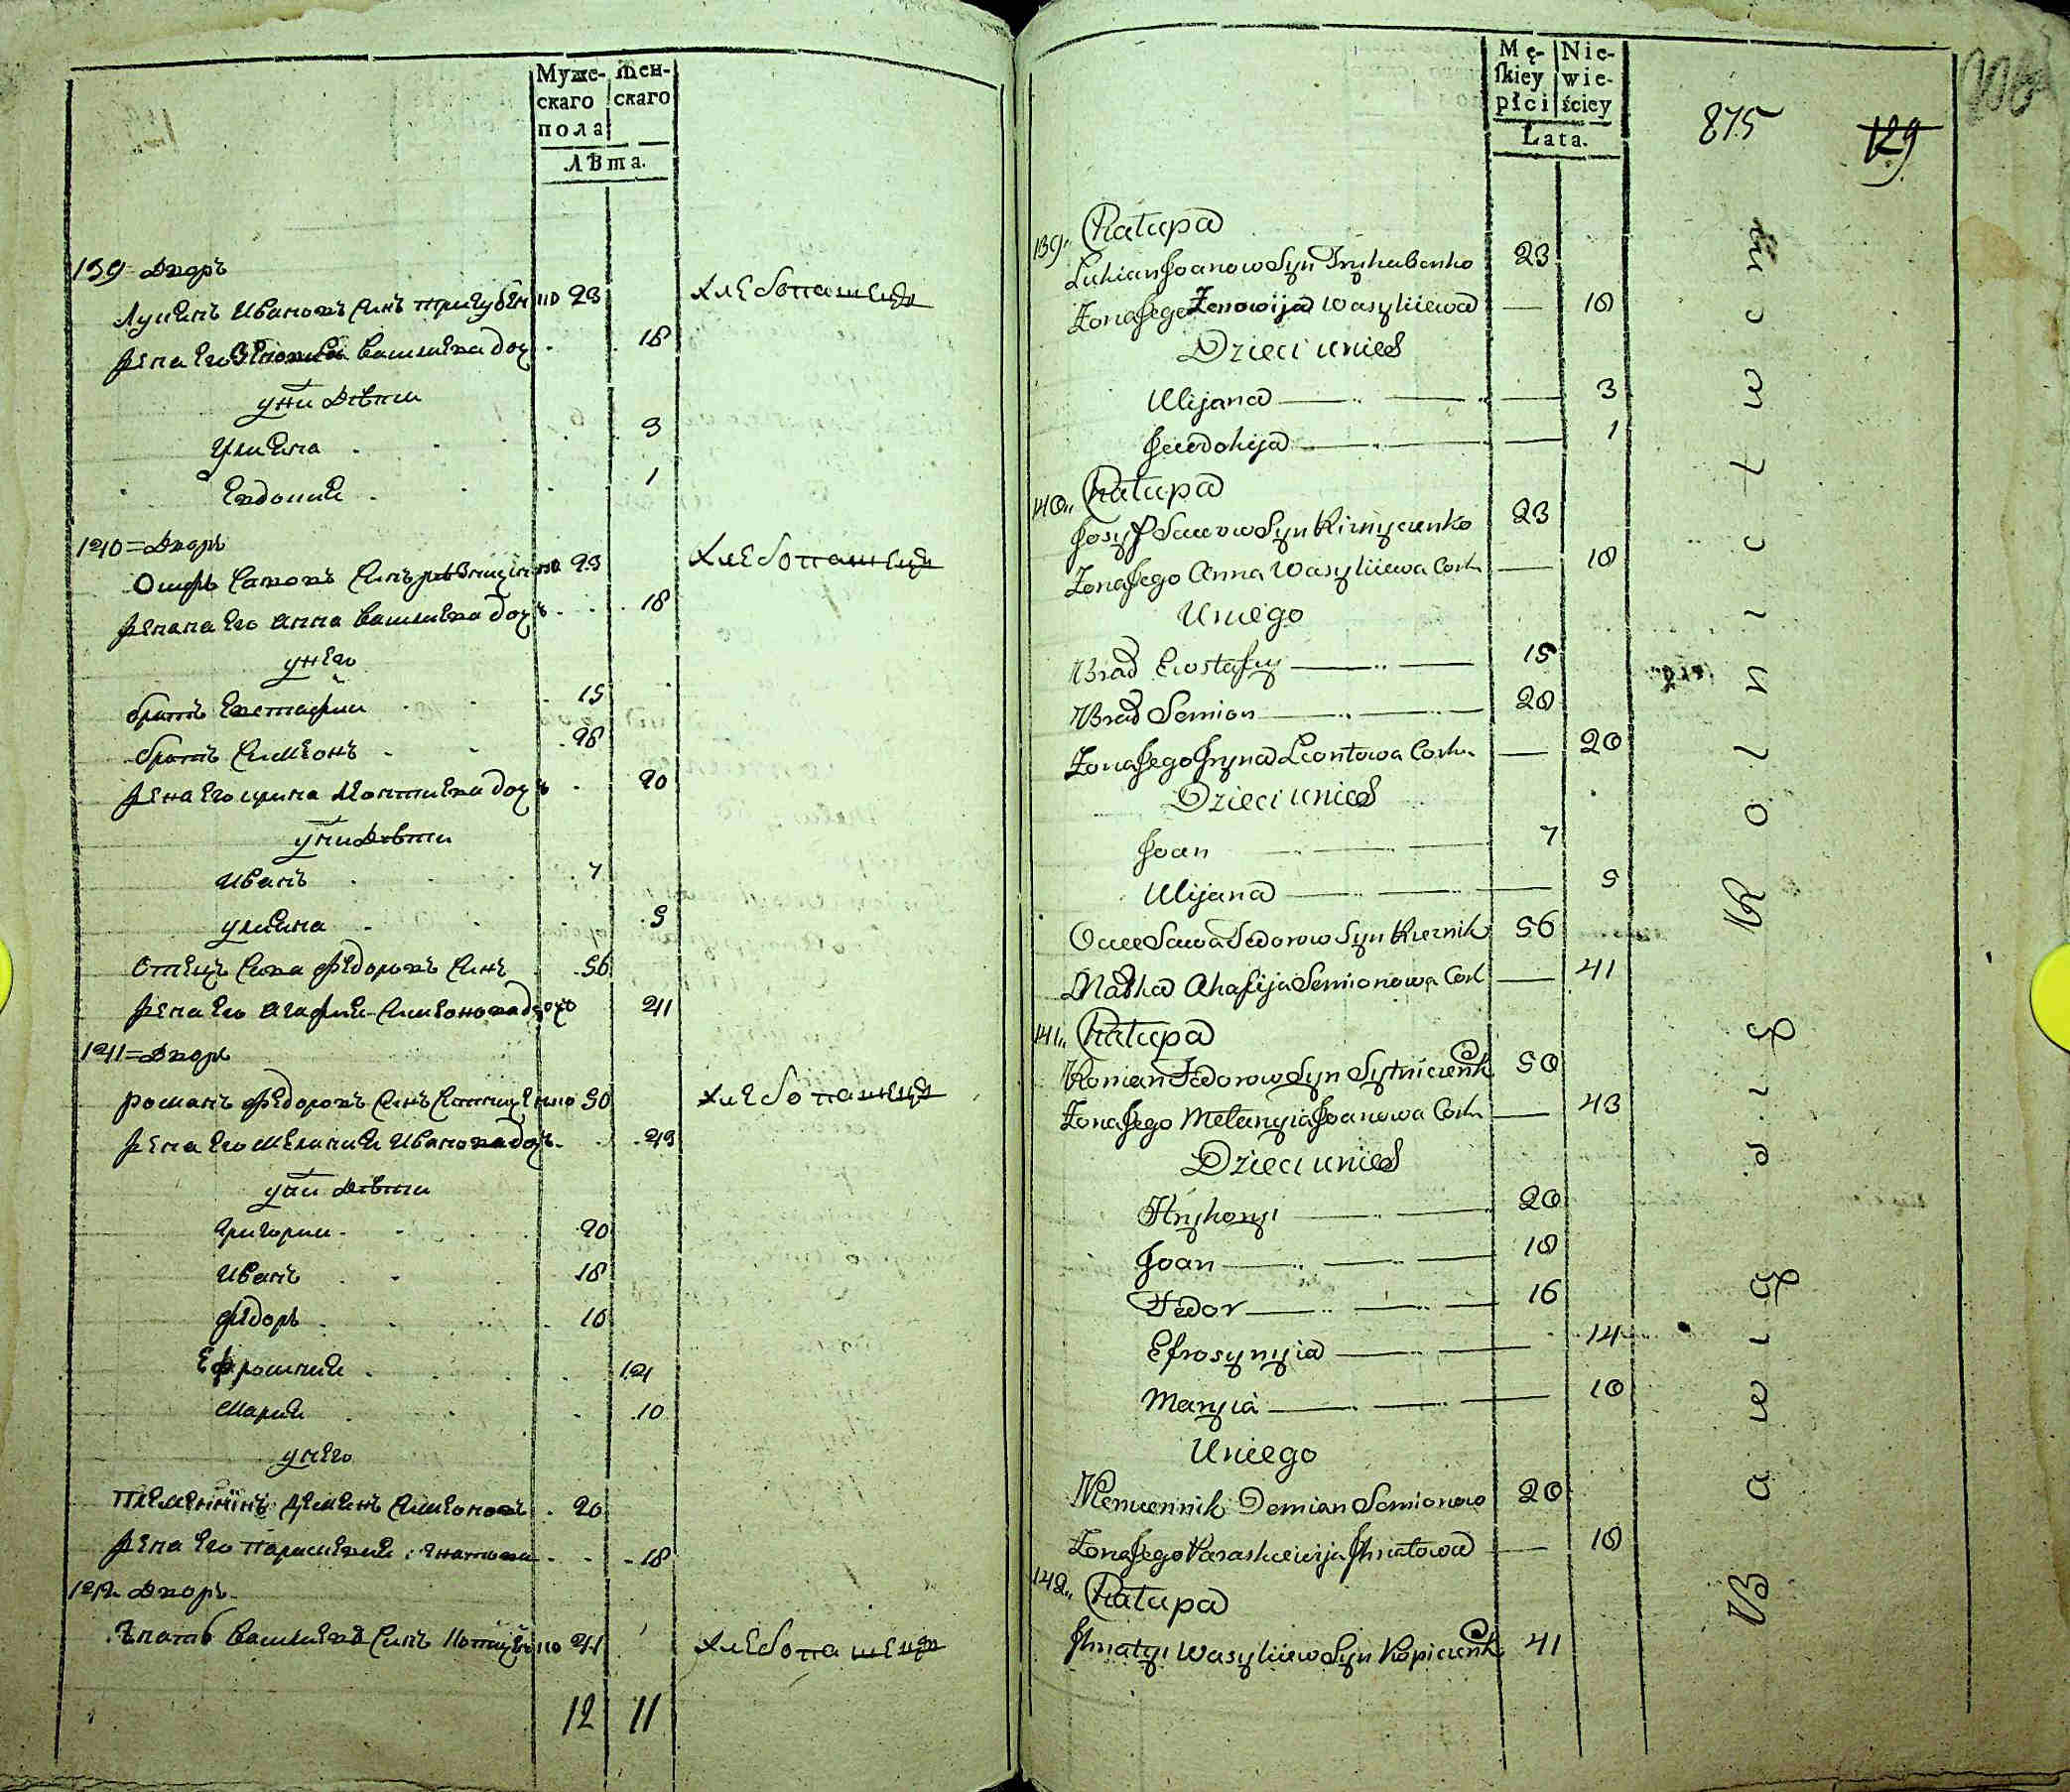 Муже-
скаго
пола
жен-
скаго
лѣта.
139 = Дворъ
Лукиянъ Ивановъ Синъ Тригубенко 23
Хлебопашецъ
Жена Его Зѣновия Василиева доч. 18
у них Дѣти
Улияна 3
Евдокия 1
140 = Дворъ
Осифъ Савовъ Синъ 23
Хлебопашецъ
Жена Его Анна Василиева дочъ 18
у него
братъ Евстафии 15
братъ Симеонъ 28
Жена Его ирина Леонтиева дочъ 20
у них Дѣти
Иванъ 7
улияна 5
Отецъ Сава Федоровъ Синъ 56
Жена Его Агафия Симеонова дочъ 41
141 = Дворъ
романъ Федоровъ Синъ Ситниченко 50
Хлебопашецъ
Жена Его Мелания Иванова доч. 43
у них Дѣти
Григории 20
Иванъ 18
Федоръ 16
Ефросиния 14
Мария 10
у него
племенникъ Демиянъ Симеоновъ 20
Жена Его Параскевия Игнатова 18
142 Дворъ
Василиевъ Синъ 41
Хлебопашецъ
12 11
Mę-
skiey
płci
Nie-
wie-
ściey
Lata.
875
129
139. Chałupa
Łukian Joanow Syn Tryhubenko 23
Żona Jego Zenowija Wasyliiewa 18
Dzieci u nich
Ulijana 3
Jewdokija 1
140. Chałupa
Josyf Sawow Syn 23
Żona Jego Anna Wasyliiewa Cork. 18
U niego
Brad Ewstafiy 15
Brad Semion 28
Żona Jego Iryna Leontowa Cork. 20
Dzieci u nich
Joan 7
Ulijana 5
Ociec Sawa Fedorow Syn 56
Matka Ahafija Semionowa Cork 41
141. Chałupa
Roman Fedorow Syn Sytniczenk 50
Żona Jego Melanyia Joanowa Cork. 43
Dzieci u nich
Hryhoryi 20
Joan 18
Fedor 16
Efrosynyia 14
Maryia 10
U niego
Plemiennik Demian Semionow 20
Żona Jego Paraskewija Ihnatowa 18
142. Chałupa
Ihnatyi Wasyliiew Syn 41
Bawią się Rolnictwem